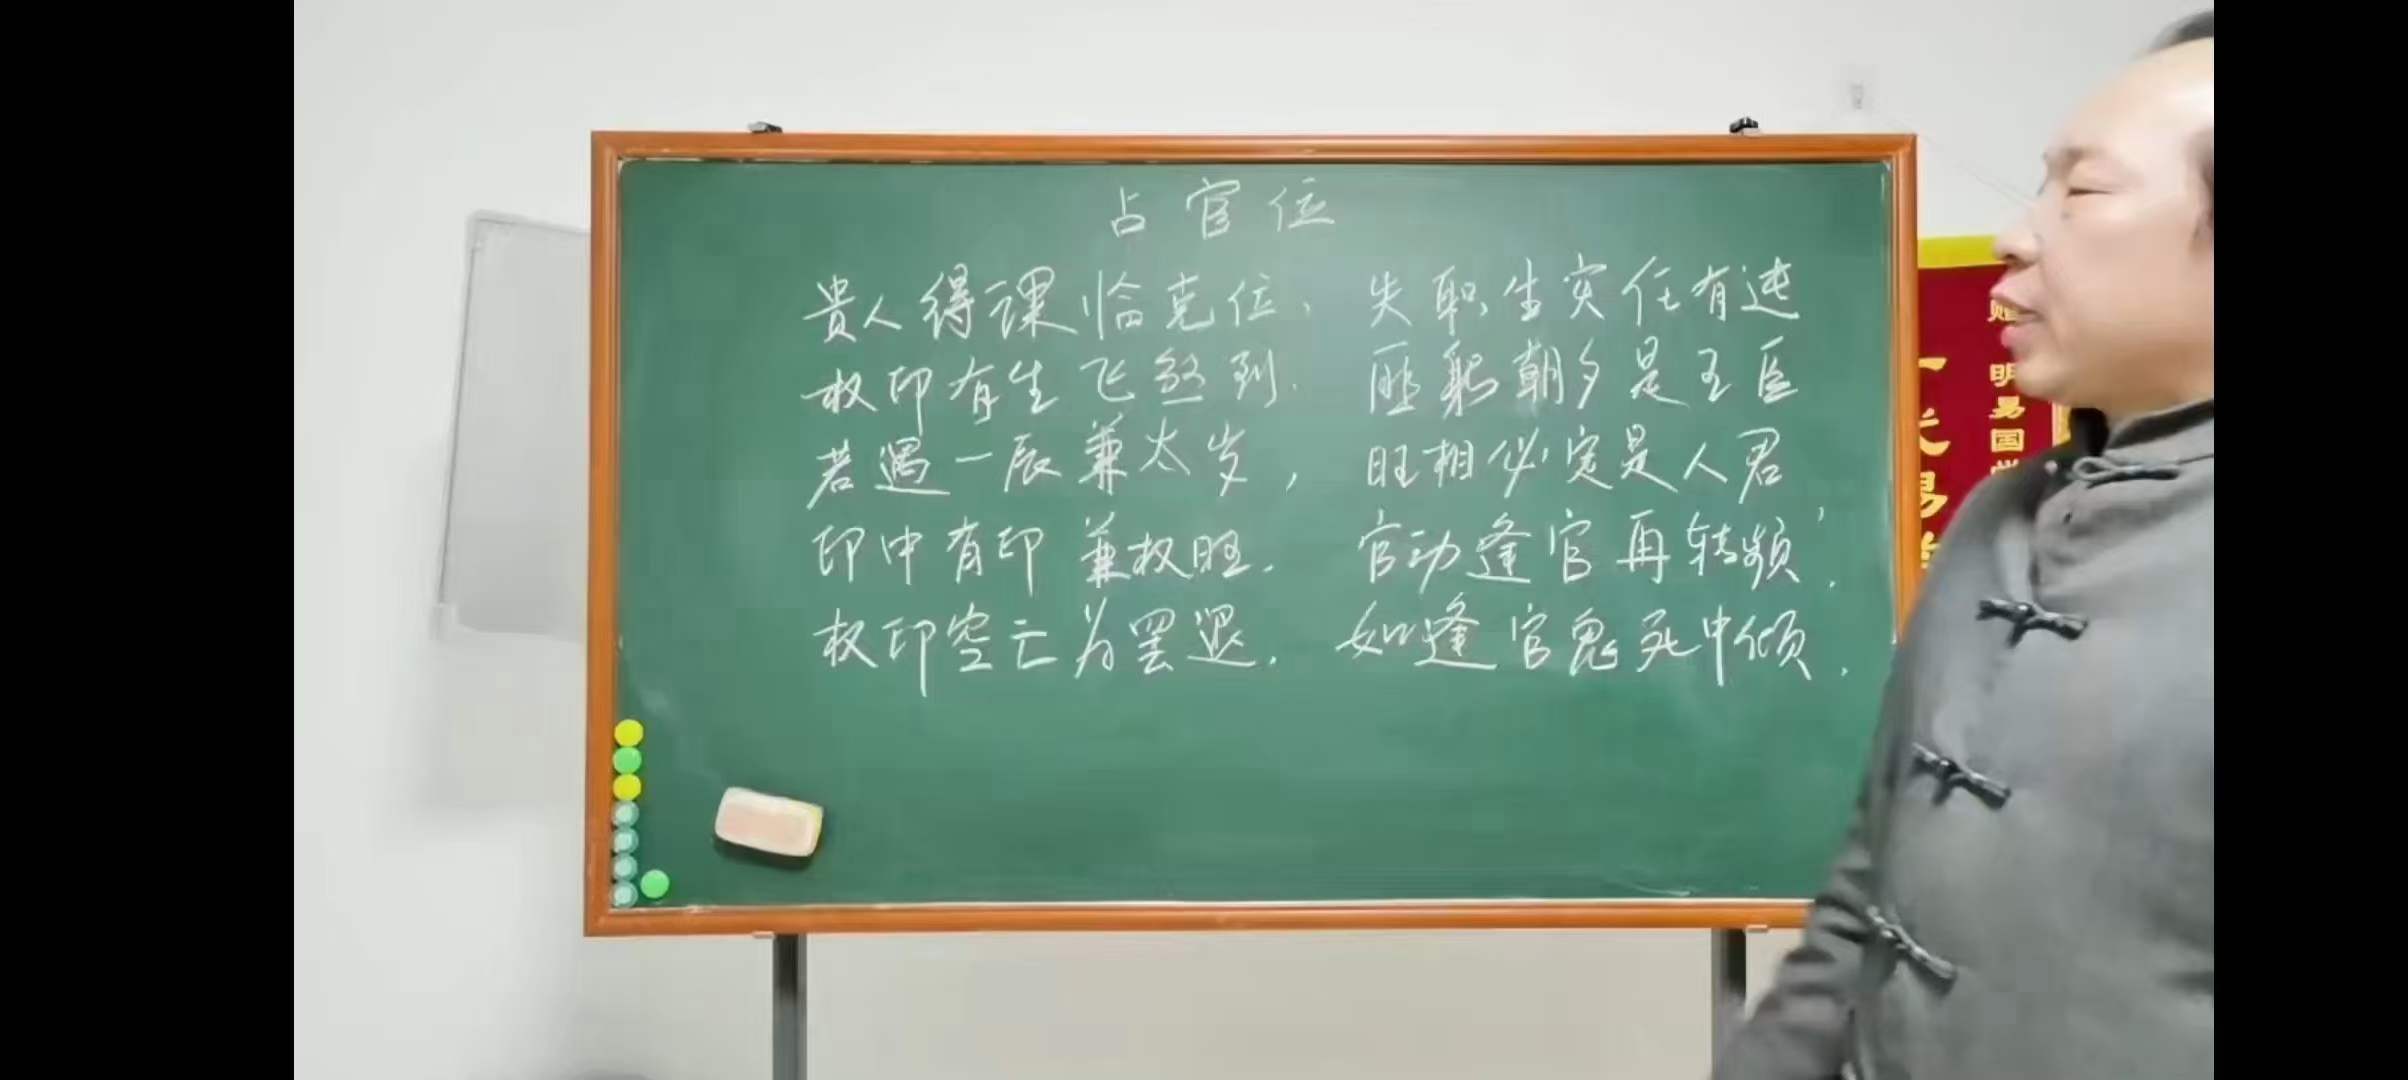 占官位
贵人得课恰克位，失职生灾任有迍
权印有生飞煞到．匪躬朝夕是王臣
若遇一辰兼太岁，旺相必定是人君
印中有印兼权旺．官动逢官再转频．
权印空亡为罢退．如逢官鬼死中倾．
明易国学